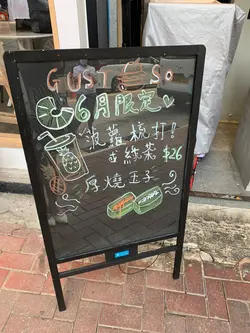 GUSTOSO
6月限定
菠蘿梳打!
或綠茶 $26
厚燒玉子